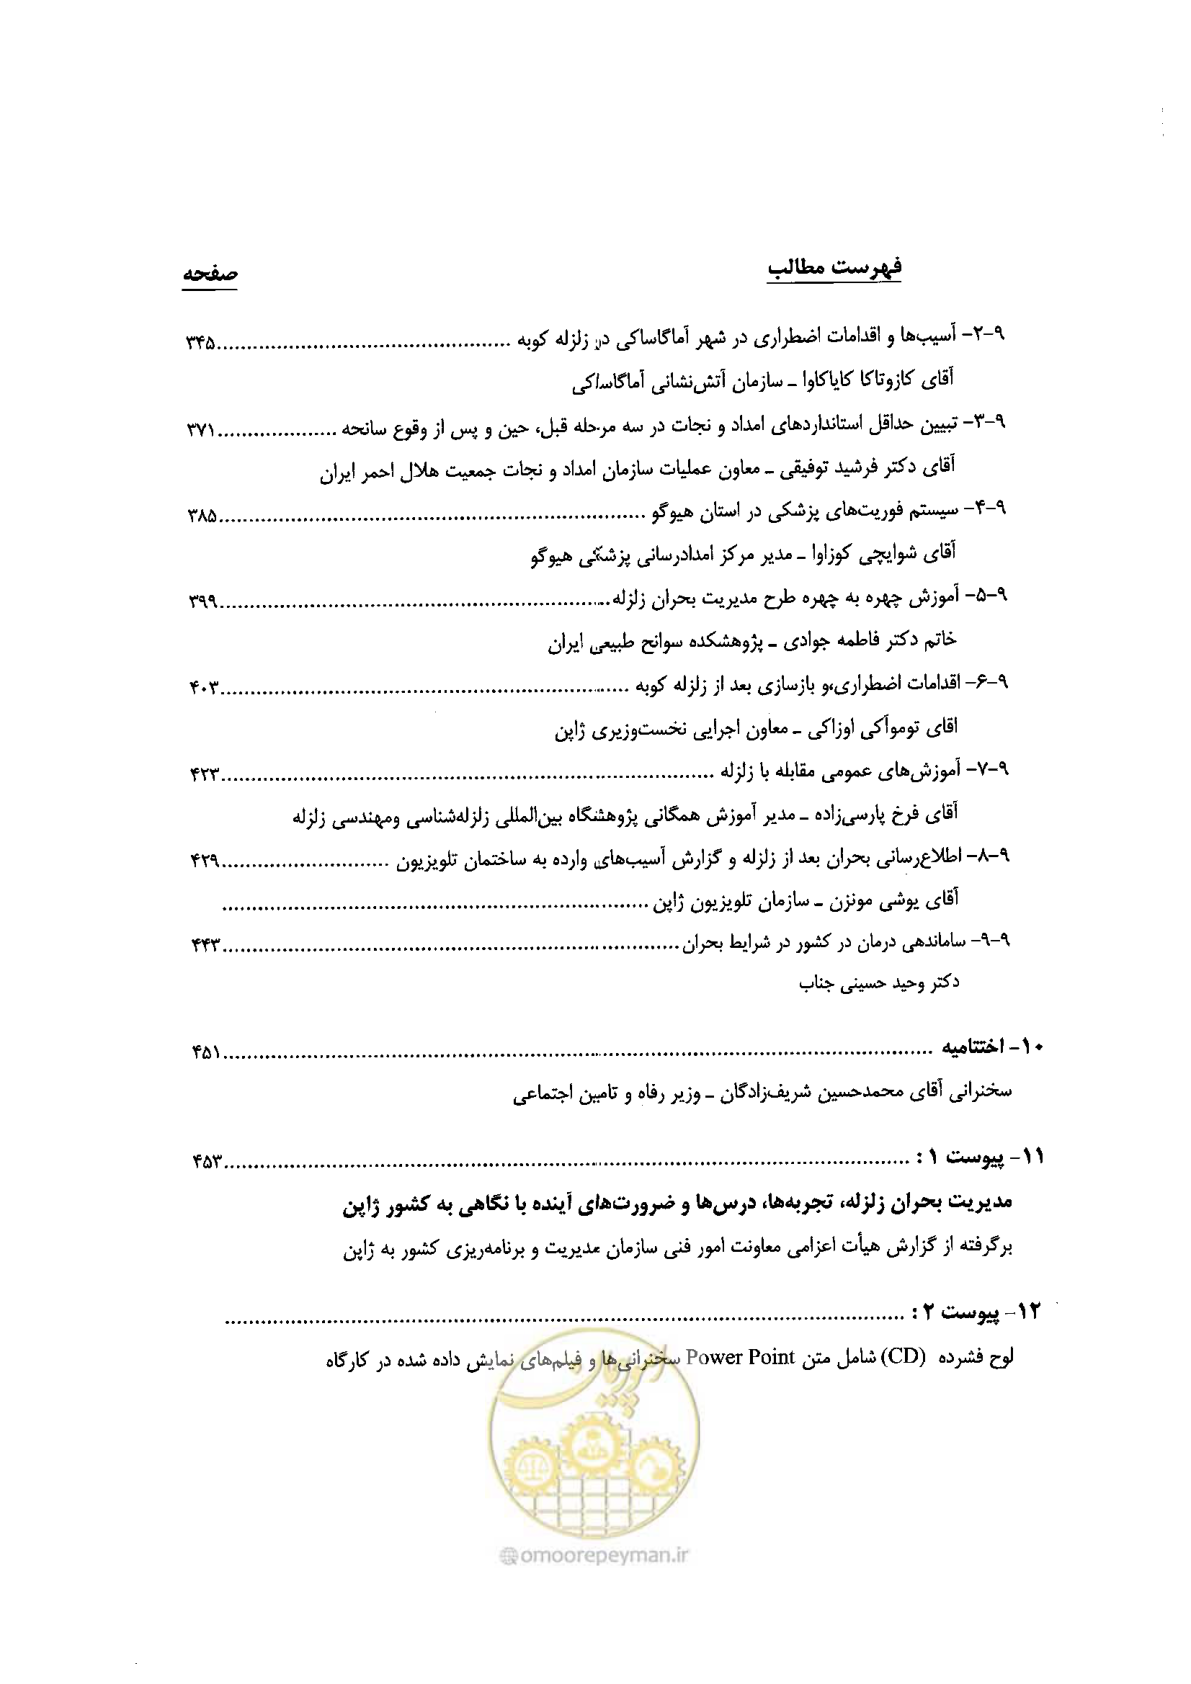 فهرست مطالب صفحه
۹-۲- آسیب‌ها و اقدامات اضطراری در شهر آماگاساکی در زلزله کوبه ........ ۳۴۵
آقای کازوتاکا کایاکاوا ـ سازمان آتش‌نشانی آماگاساکی
۹-۳- تبیین حداقل استانداردهای امداد و نجات در سه مرحله قبل، حین و پس از وقوع سانحه ........ ۳۷۱
آقای دکتر فرشید توفیقی ـ معاون عملیات سازمان امداد و نجات جمعیت هلال احمر ایران
۹-۴- سیستم فوریت‌های پزشکی در استان هیوگو ........ ۳۸۵
آقای شوایچی کوزاوا ـ مدیر مرکز امدادرسانی پزشکی هیوگو
۹-۵- آموزش چهره به چهره طرح مدیریت بحران زلزله ........ ۳۹۹
خاتم دکتر فاطمه جوادی ـ پژوهشکده سوانح طبیعی ایران
۹-۶- اقدامات اضطراری،و بازسازی بعد از زلزله کوبه ........ ۴۰۳
اقای تومواکی اوزاکی ـ معاون اجرایی نخست‌وزیری ژاپن
۹-۷- آموزش‌های عمومی مقابله با زلزله ........ ۴۲۳
آقای فرخ پارسی‌زاده ـ مدیر آموزش همگانی پژوهشگاه بین‌المللی زلزله‌شناسی ومهندسی زلزله
۹-۸- اطلاع‌رسانی بحران بعد از زلزله و گزارش آسیب‌های وارده به ساختمان تلویزیون ........ ۴۲۹
آقای یوشی مونزن ـ سازمان تلویزیون ژاپن ........
۹-۹- ساماندهی درمان در کشور در شرایط بحران ........ ۴۴۳
دکتر وحید حسینی جناب
۱۰- اختتامیه ........ ۴۵۱
سخنرانی آقای محمدحسین شریف‌زادگان ـ وزیر رفاه و تامین اجتماعی
۱۱- پیوست ۱ : ........ ۴۵۳
مدیریت بحران زلزله، تجربه‌ها، درس‌ها و ضرورت‌های آینده با نگاهی به کشور ژاپن
برگرفته از گزارش هیأت اعزامی معاونت امور فنی سازمان مدیریت و برنامه‌ریزی کشور به ژاپن
۱۲- پیوست ۲ : ........
لوح فشرده (CD) شامل متن Power Point سخنرانی‌ها و فیلم‌های نمایش داده شده در کارگاه
امور پیمان
omoorepeyman.ir